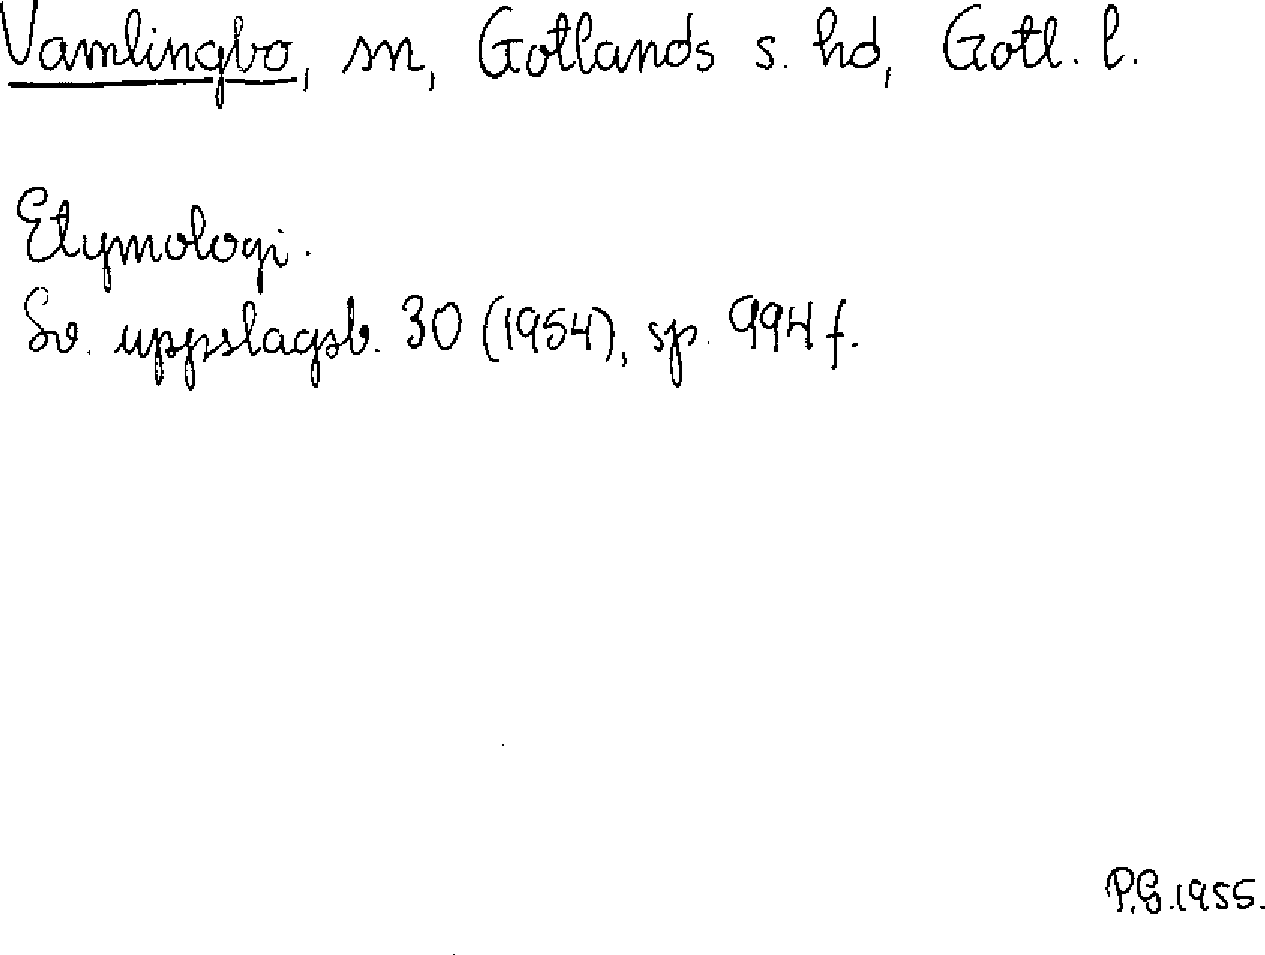 Vamlingbo, sn, Gotlands s. hd, Gotl. l.
Etymologi.
Sv. uppslagsb. 30 (1954), sp. 994 f.
P.G. 1955.